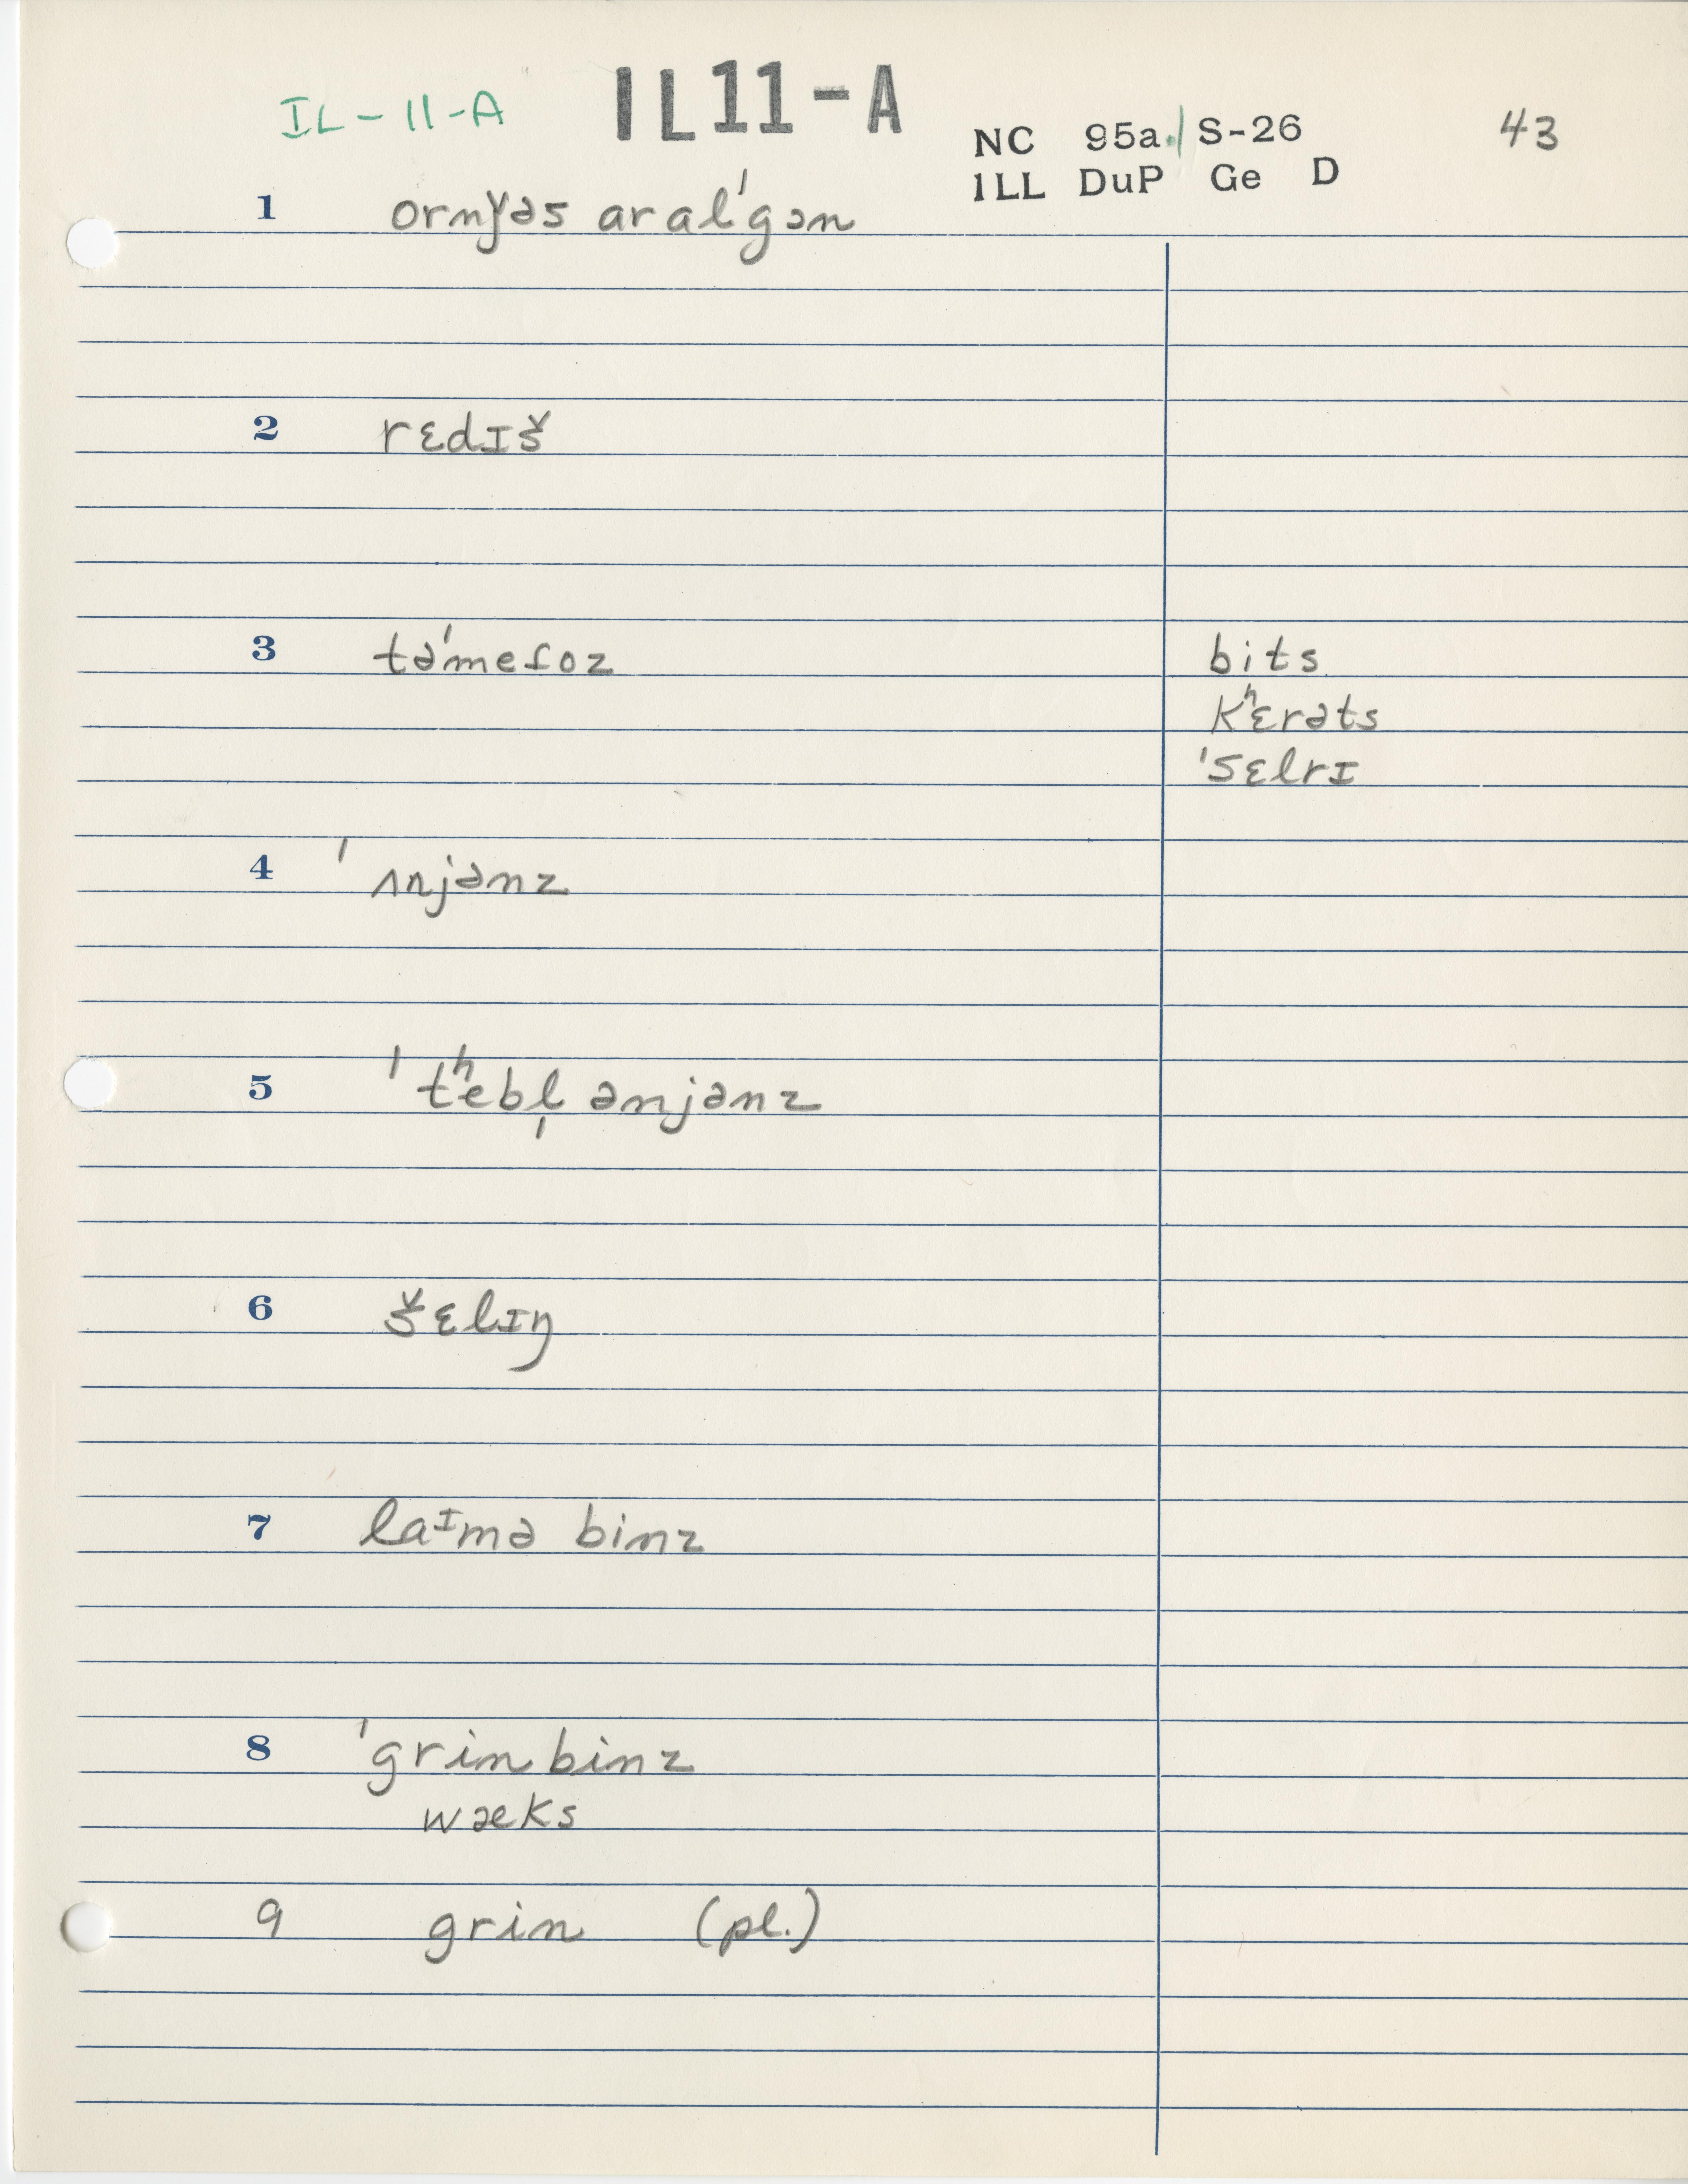 IL-11-A IL11-A
NC 95a. S-26 43
ILL DuP Ge D
1 ornɣəs aral'gən
2 rɛdɪš
3 tə'meɾoz bits
kʰɛrəts
'sɛlrɪ
4 'ʌnjənz
5 'tʰebl̩ ənjənz
6 šɛlɪŋ
7 laᶦmə binz
8 'grin binz
wæks
9 grin (pl.)